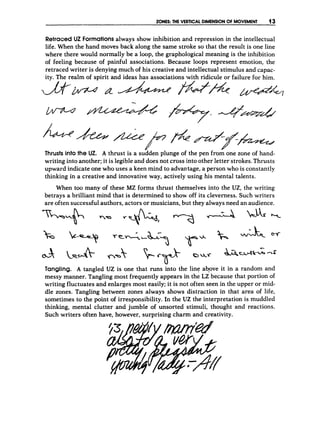 ZONES: THE VERTICAL DIMENSION OF MOVEMENT 13
Retraced UZ Formations always show inhibition and repression in the intellectual
life. When the hand moves back along the same stroke so that the result is one line
where there would normally be a loop, the graphological meaning is the inhibition
of feeling because of painful associations. Because loops represent emotion, the
retraced writer is denying much of his creative and intellectual stimulus and capac-
ity. The realm of spirit and ideas has associations with ridicule or failure for him.
It was a shame that the weather
was miserable today. It would
have been nice for the out of towners
Thrusts into the UZ. A thrust is a sudden plunge of the pen from one zone of hand-
writing into another; it is legible and does not cross into other letter strokes. Thrusts
upward indicate one who uses a keen mind to advantage, a person who is constantly
thinking in a creative and innovative way, actively using his mental talents.
When too many of these MZ forms thrust themselves into the UZ, the writing
betrays a brilliant mind that is determined to show off its cleverness. Such writers
are often successful authors, actors or musicians, but they always need an audience.
Through no
to keep reminding you to write or
at least not forget our discussions
Tangling. A tangled UZ is one that runs into the line above it in a random and
messy manner. Tangling most frequently appears in the LZ because that portion of
writing fluctuates and enlarges most easily; it is not often seen in the upper or mid-
dle zones. Tangling between zones always shows distraction in that area of life,
sometimes to the point of irresponsibility. In the UZ the interpretation is muddled
thinking, mental clutter and jumble of unsorted stimuli, thought and reactions.
Such writers often have, however, surprising charm and creativity.
is, newly married
also to a very
pretty, pleasant
young lady. - All